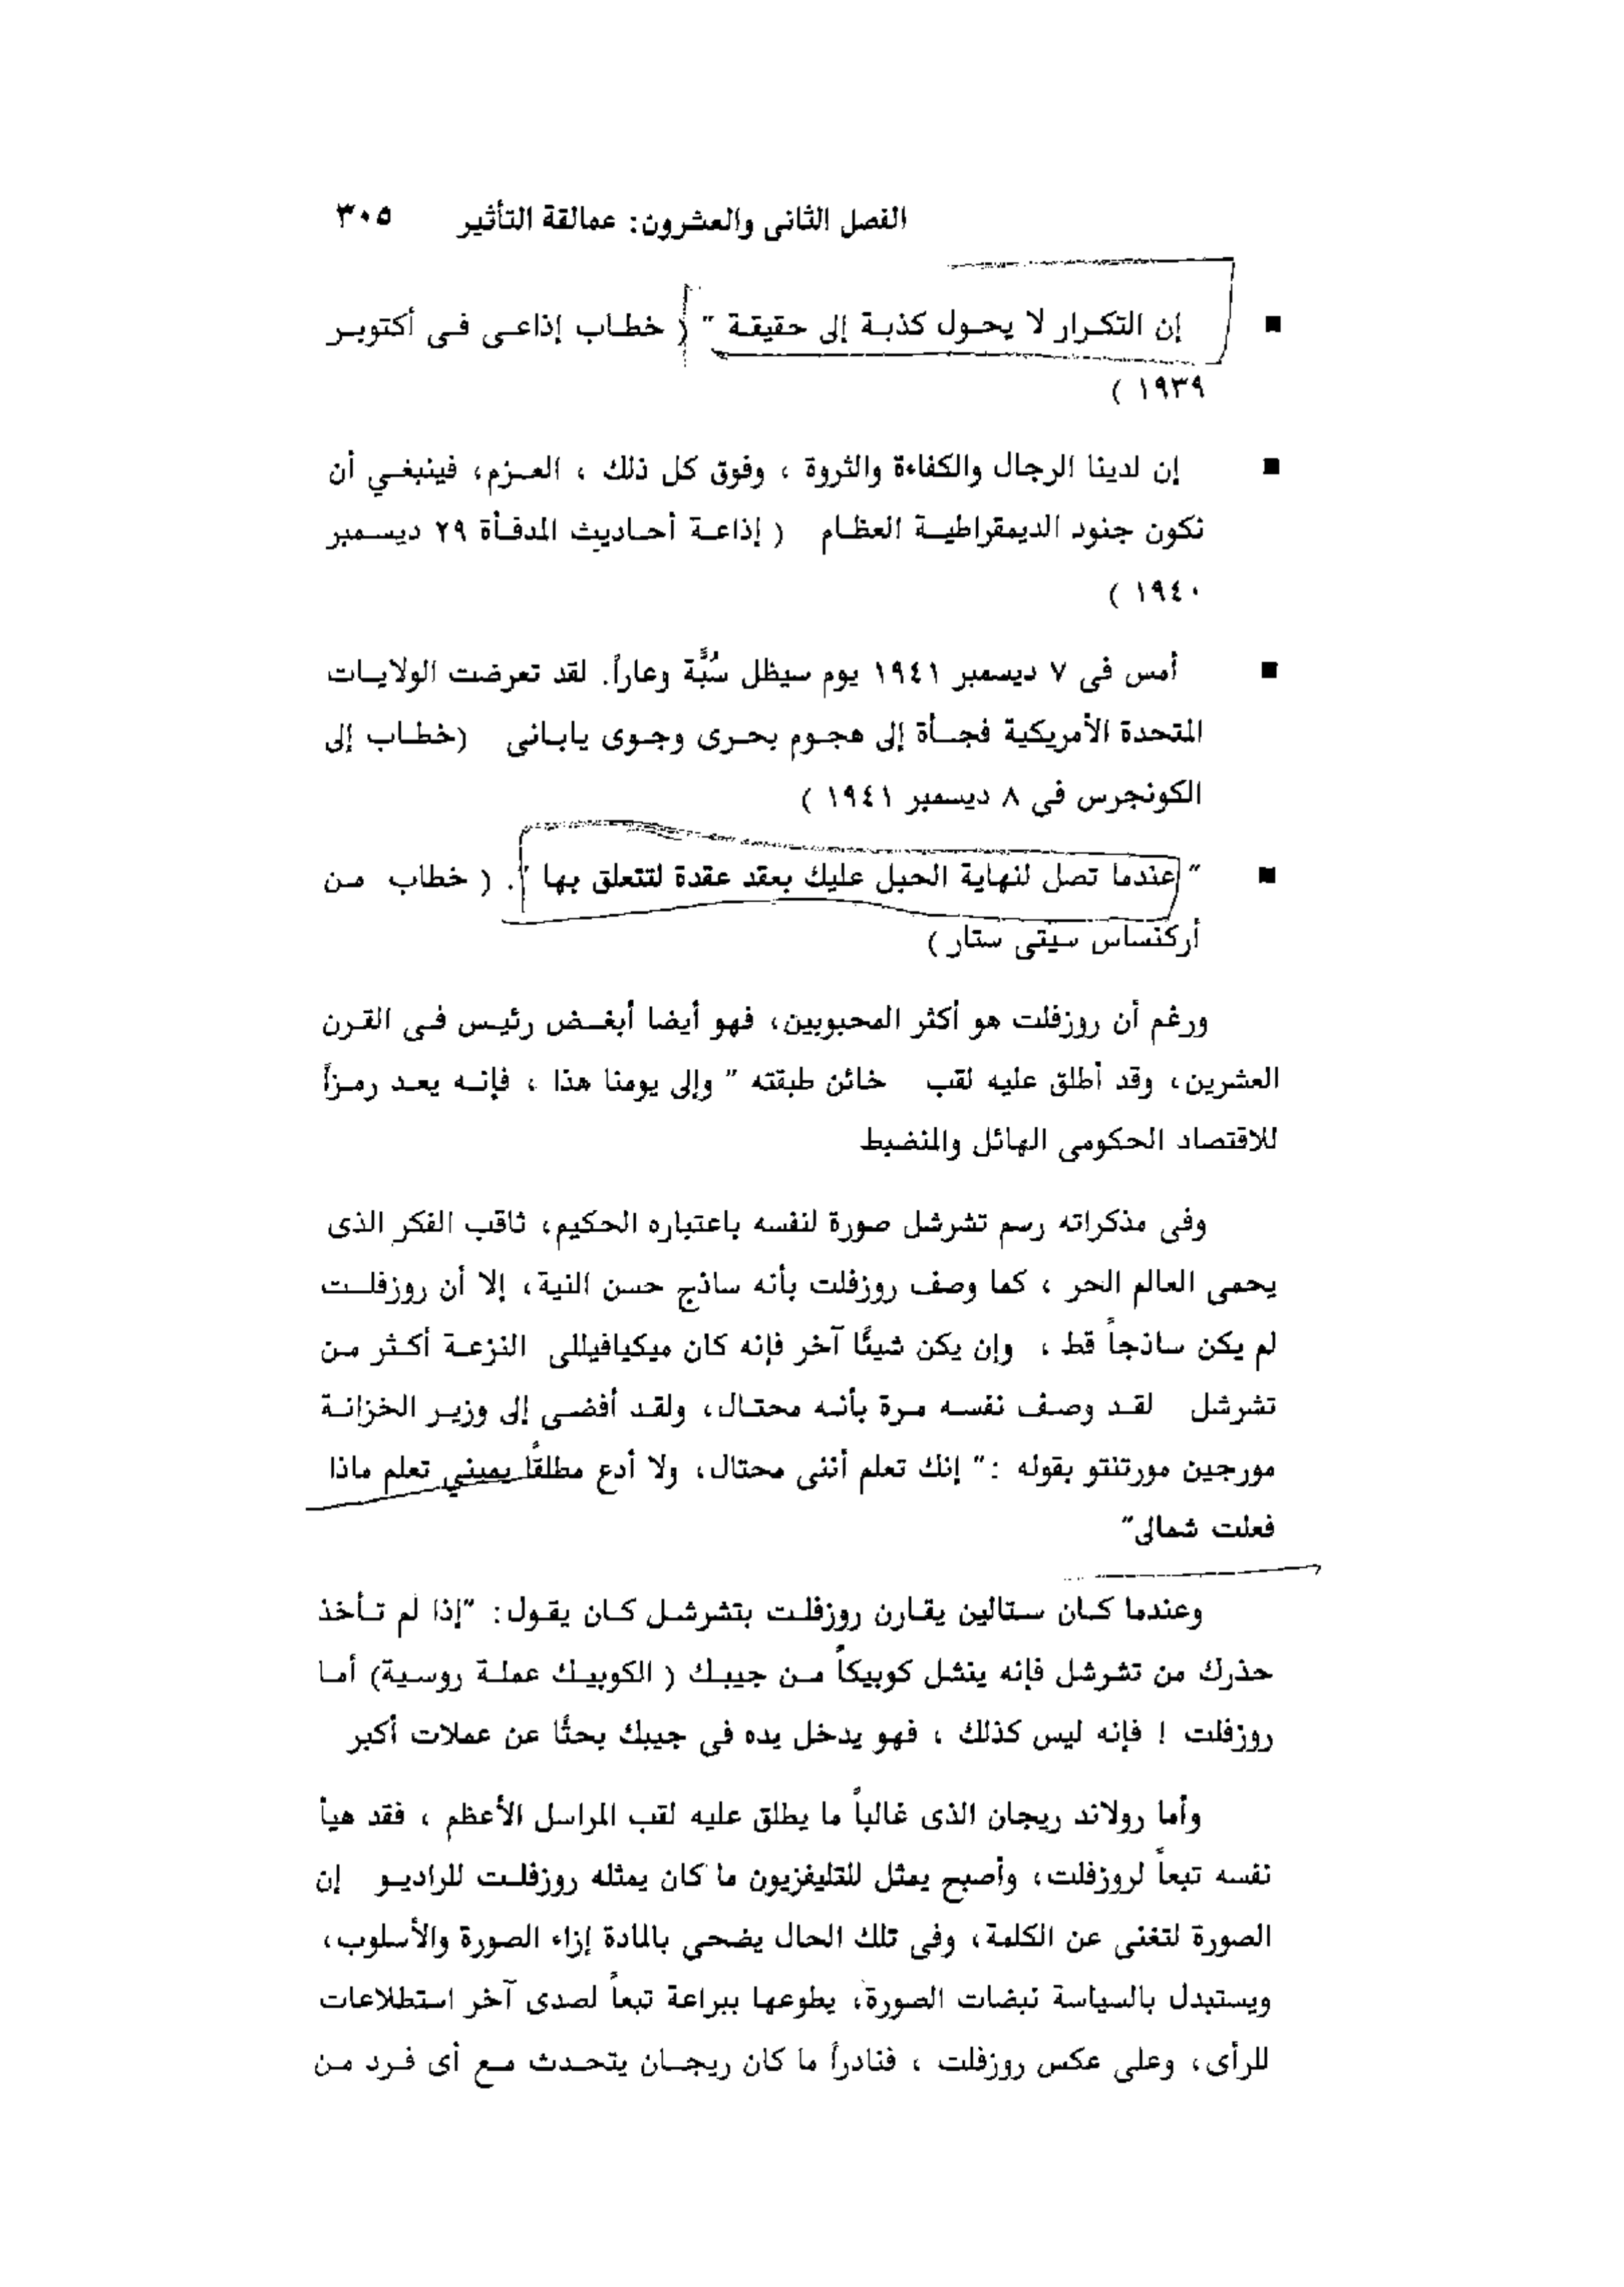 الفصل الثانى والعشرون: عمالقة التأثير ٣٠٥
■ إن التكرار لا يحول كذبة إلى حقيقة " ( خطاب إذاعى فى أكتوبر
١٩٣٩ )
■ إن لدينا الرجال والكفاءة والثروة ، وفوق كل ذلك ، العزم، فينبغي أن
نكون جنود الديمقراطية العظام ( إذاعة أحاديث المدفأة ٢٩ ديسمبر
١٩٤٠ )
■ أمس فى ٧ ديسمبر ١٩٤١ يوم سيظل سُبَّة وعاراً. لقد تعرضت الولايات
المتحدة الأمريكية فجأة إلى هجوم بحرى وجوى يابانى (خطاب إلى
الكونجرس في ٨ ديسمبر ١٩٤١ )
■ " عندما تصل لنهاية الحبل عليك بعقد عقدة لتتعلق بها ". ( خطاب من
أركنساس سيتى ستار )
ورغم أن روزفلت هو أكثر المحبوبين، فهو أيضا أبغض رئيس فى القرن
العشرين، وقد أطلق عليه لقب خائن طبقته " وإلى يومنا هذا ، فإنه يعد رمزاً
للاقتصاد الحكومى الهائل والمنضبط
وفى مذكراته رسم تشرشل صورة لنفسه باعتباره الحكيم، ثاقب الفكر الذى
يحمى العالم الحر ، كما وصف روزفلت بأنه ساذج حسن النية، إلا أن روزفلت
لم يكن ساذجاً قط ، وإن يكن شيئًا آخر فإنه كان ميكيافيللى النزعة أكثر من
تشرشل لقد وصف نفسه مرة بأنه محتال، ولقد أفضى إلى وزير الخزانة
مورجين مورتنتو بقوله :" إنك تعلم أننى محتال، ولا أدع مطلقًا يميني تعلم ماذا
فعلت شمالى"
وعندما كان ستالين يقارن روزفلت بتشرشل كان يقول: "إذا لم تأخذ
حذرك من تشرشل فإنه ينشل كوبيكاً من جيبك ( الكوبيك عملة روسية) أما
روزفلت ! فإنه ليس كذلك ، فهو يدخل يده فى جيبك بحثًا عن عملات أكبر
وأما رولاند ريجان الذى غالباً ما يطلق عليه لقب المراسل الأعظم ، فقد هيأ
نفسه تبعاً لروزفلت، وأصبح يمثل للتليفزيون ما كان يمثله روزفلت للراديو إن
الصورة لتغنى عن الكلمة، وفى تلك الحال يضحى بالمادة إزاء الصورة والأسلوب،
ويستبدل بالسياسة نبضات الصورة، يطوعها ببراعة تبعاً لصدى آخر استطلاعات
للرأى، وعلى عكس روزفلت ، فنادراً ما كان ريجان يتحدث مع أى فرد من